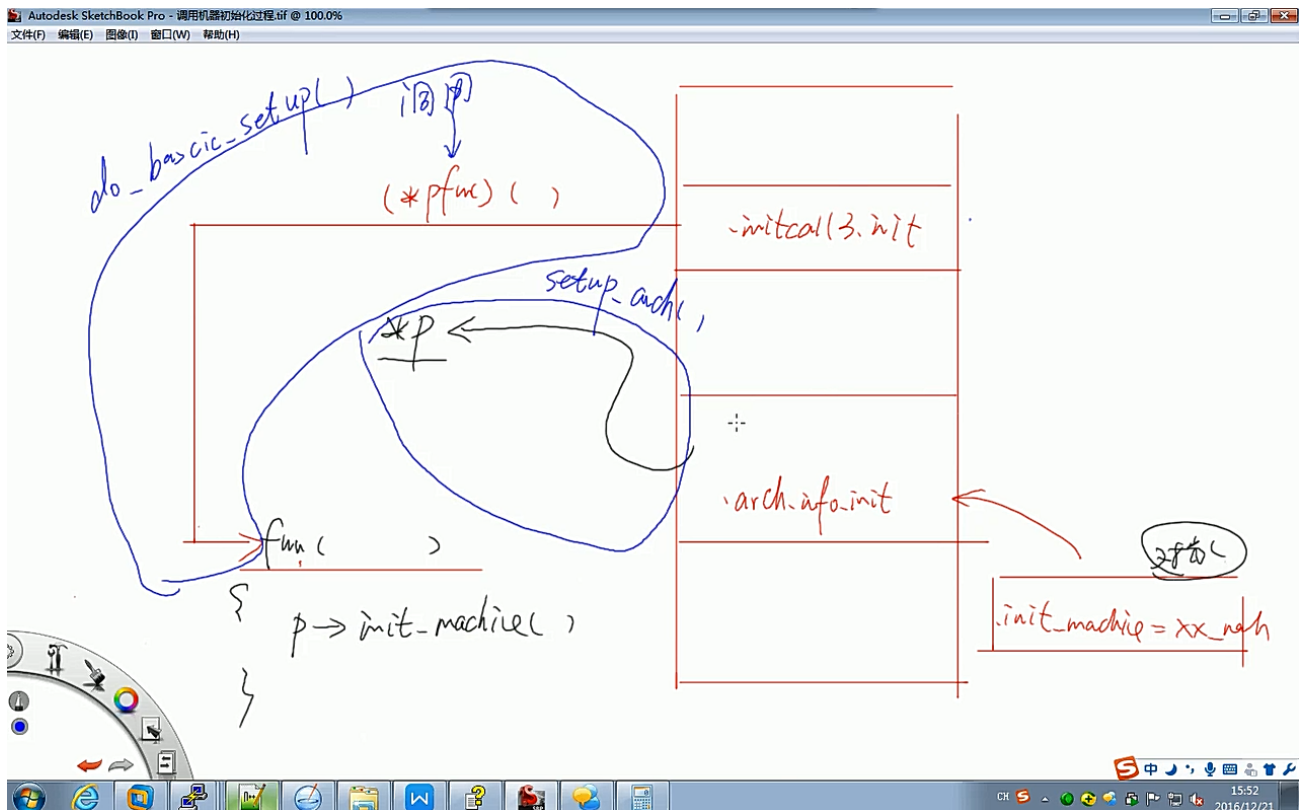 Autodesk SketchBook Pro - 调用机器初始化过程.tif @ 100.0%
文件(F) 编辑(E) 图像(I) 窗口(W) 帮助(H)
do_bascic_setup( )
调用
(*pfunc) ( )
.initcall3.init
setup_arch( )
*p
.arch.info.init
func( )
{
p->init_machie( )
}
对象
.init_machie = xx_mach
中
CH
15:52
2016/12/21